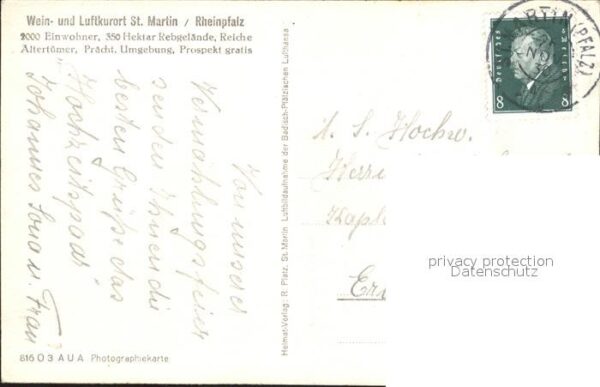 Wein- und Luftkurort St. Martin / Rheinpfalz
2000 Einwohner, 350 Hektar Rebgelände, Reiche
Altertümer, Prächt. Umgebung, Prospekt gratis
Von unserer
Vermählungsfeier
senden Ihnen die
besten Grüße das
"Hochzeitspaar"
Johannes u. Frau
816 O 3 A U A Photographiekarte
Heimat-Verlag: R. Platz, St. Martin. Luftbildaufnahme der Badisch-Pfälzischen Lufthansa
MARTIN (PFALZ)
Deutsches Reich
8 8
H. S. Hochw.
Herrn
Kapl
privacy protection
Datenschutz